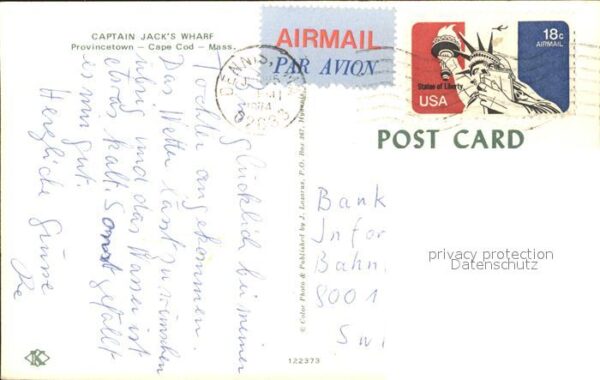 CAPTAIN JACK'S WHARF
Provincetown — Cape Cod — Mass.
AIRMAIL
PAR AVION
18c
AIRMAIL
Statue of Liberty
USA
DENNIS
POST CARD
Bin glücklich bei meiner
Tochter angekommen.
Das Wetter lässt zu wünschen
übrig und das Wasser ist
etwas kalt. Sonst gefällt
es mir gut.
Herzliche Grüsse
© Color Photo & Published by J. Lazarus, P.O. Box 367, Hyannis
122373
K
Bank
Infor
Bahn
8001
Swi
privacy protection
Datenschutz